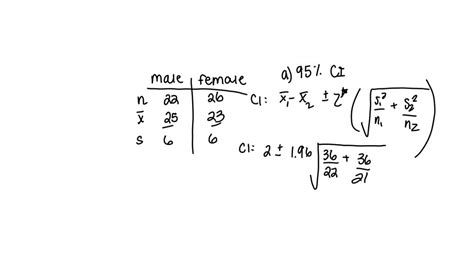 a) 95% CI
male female
n 22 26
x̄ 25 23
s 6 6
CI: x̄₁ - x̄₂ ± z* (√(s₁²/n₁ + s₂²/n₂))
CI: 2 ± 1.96 √(36/22 + 36/21)